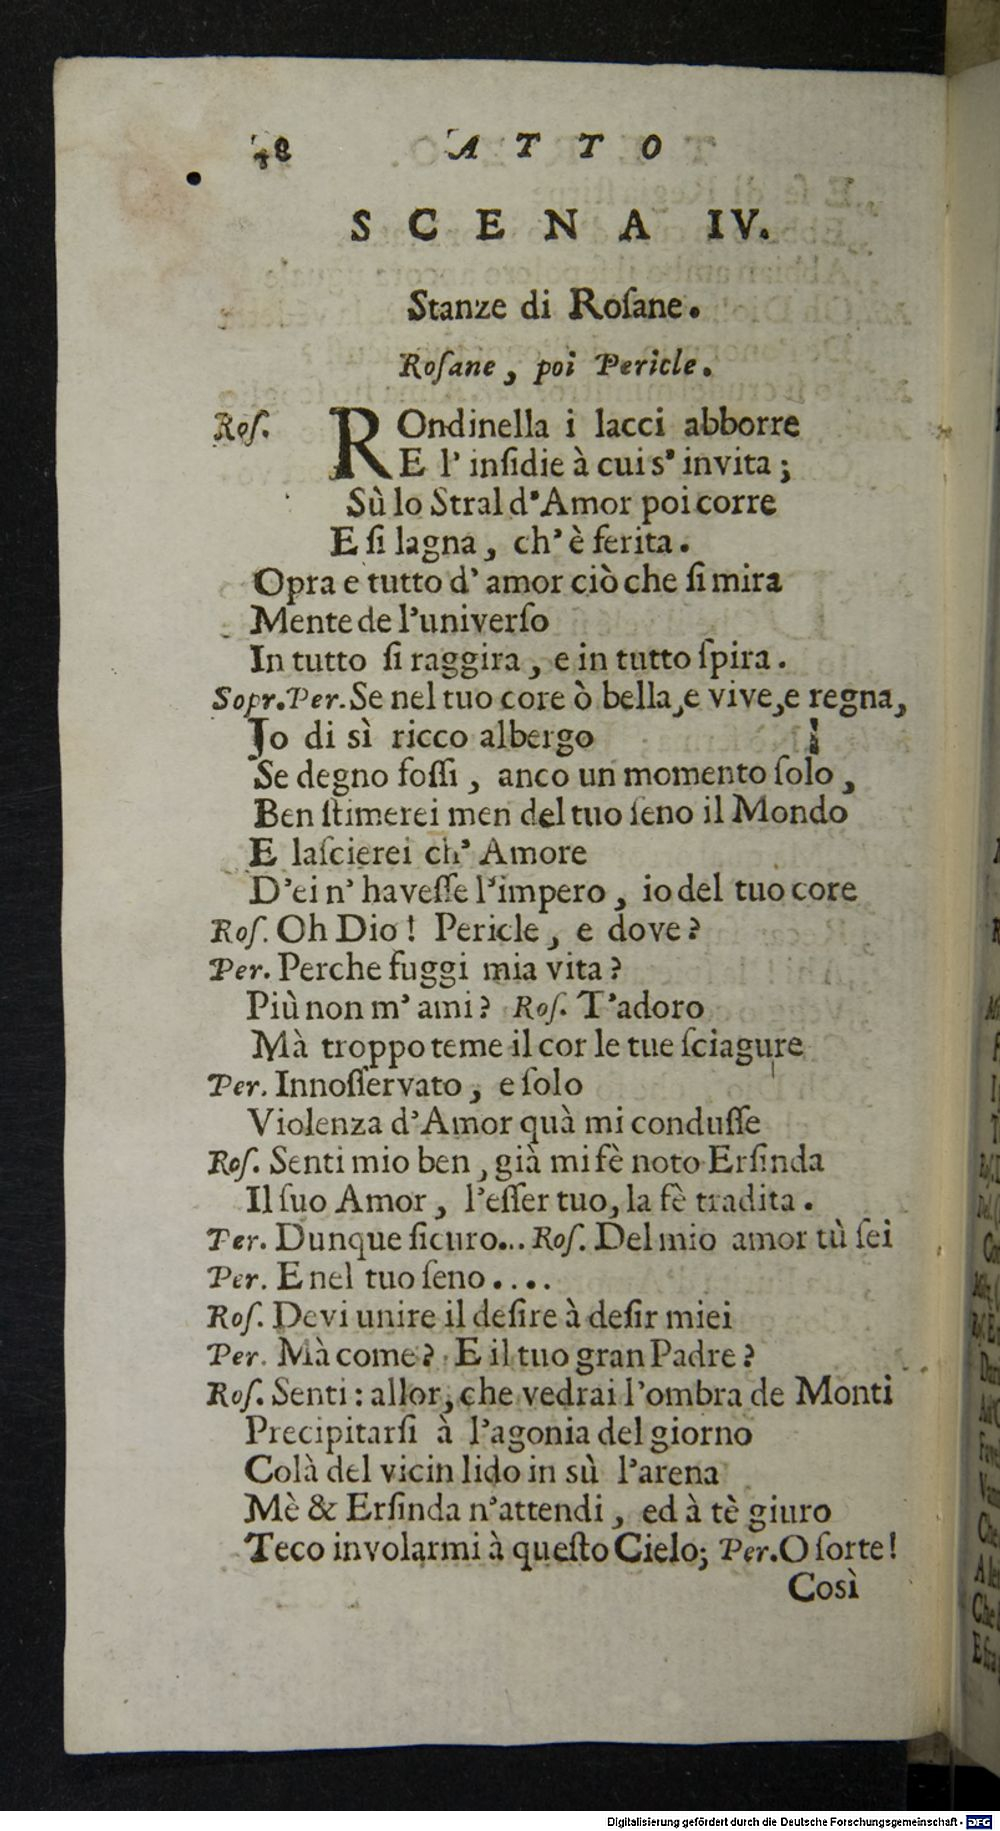 48 ATTO
SCENA IV.
Stanze di Roſane.
Roſane, poi Pericle.
Roſ. ROndinella i lacci abborre
E l' inſidie à cui s' invita;
Sù lo Stral d'Amor poi corre
E ſi lagna, ch' è ferita.
Opra e tutto d' amor ciò che ſi mira
Mente de l'univerſo
In tutto ſi raggira, e in tutto ſpira.
Sopr. Per. Se nel tuo core ò bella,e vive,e regna,
Io di sì ricco albergo
Se degno foſſi, anco un momento ſolo,
Ben ſtimerei men del tuo ſeno il Mondo
E laſcierei ch' Amore
D'ei n' haveſſe l'impero, io del tuo core
Roſ. Oh Dio! Pericle, e dove?
Per. Perche fuggi mia vita?
Più non m' ami? Roſ. T'adoro
Mà troppo teme il cor le tue ſciagure
Per. Innoſſervato, e ſolo
Violenza d'Amor quà mi conduſſe
Roſ. Senti mio ben, già mi fè noto Erſinda
Il ſuo Amor, l'eſſer tuo, la fè tradita.
Per. Dunque ſicuro... Roſ. Del mio amor tù ſei
Per. E nel tuo ſeno....
Roſ. Devi unire il deſire à deſir miei
Per. Mà come? E il tuo gran Padre?
Roſ. Senti: allor, che vedrai l'ombra de Monti
Precipitarſi à l'agonia del giorno
Colà del vicin lido in sù l'arena
Mè & Erſinda n'attendi, ed à tè giuro
Teco involarmi à queſto Cielo; Per. O ſorte!
Così
Digitalisierung gefördert durch die Deutsche Forschungsgemeinschaft - DFG